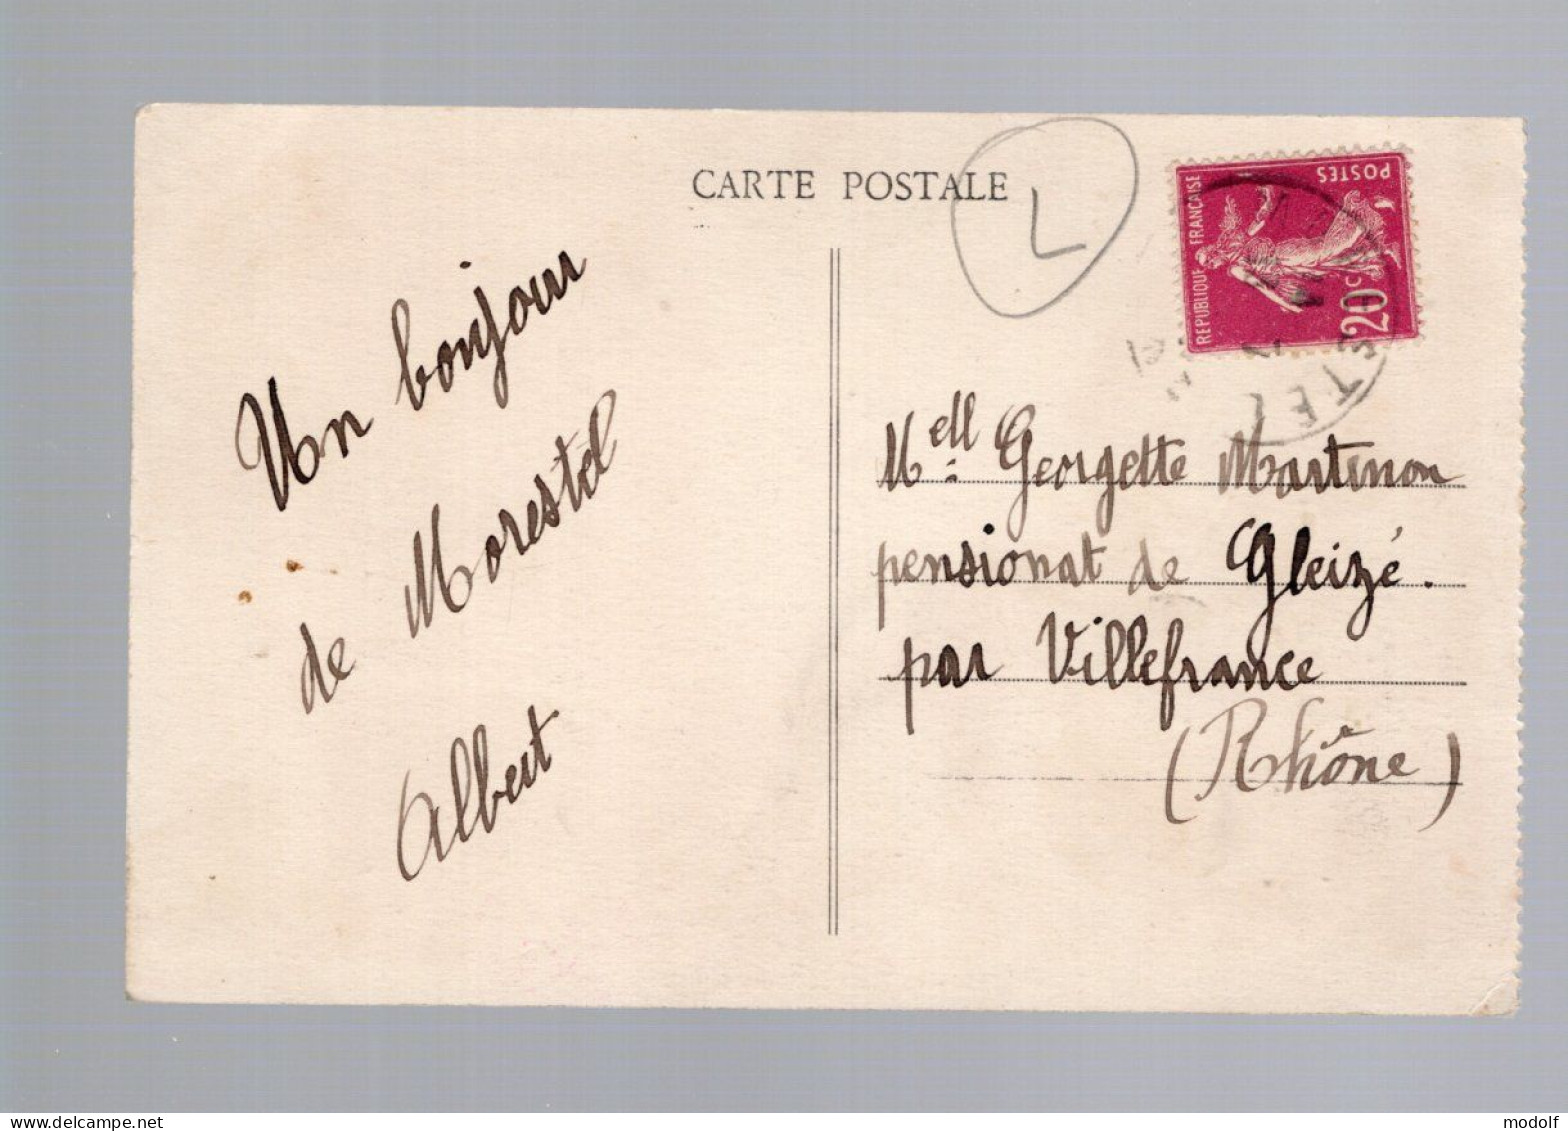 CARTE POSTALE
L
POSTES
REPUBLIQUE FRANCAISE
20 C
TEL
Un bonjour
de Morestel
Albert
Mell: Georgette Martinon
pensionat de Gleizé.
par Villefrance
(Rhône)
modolf